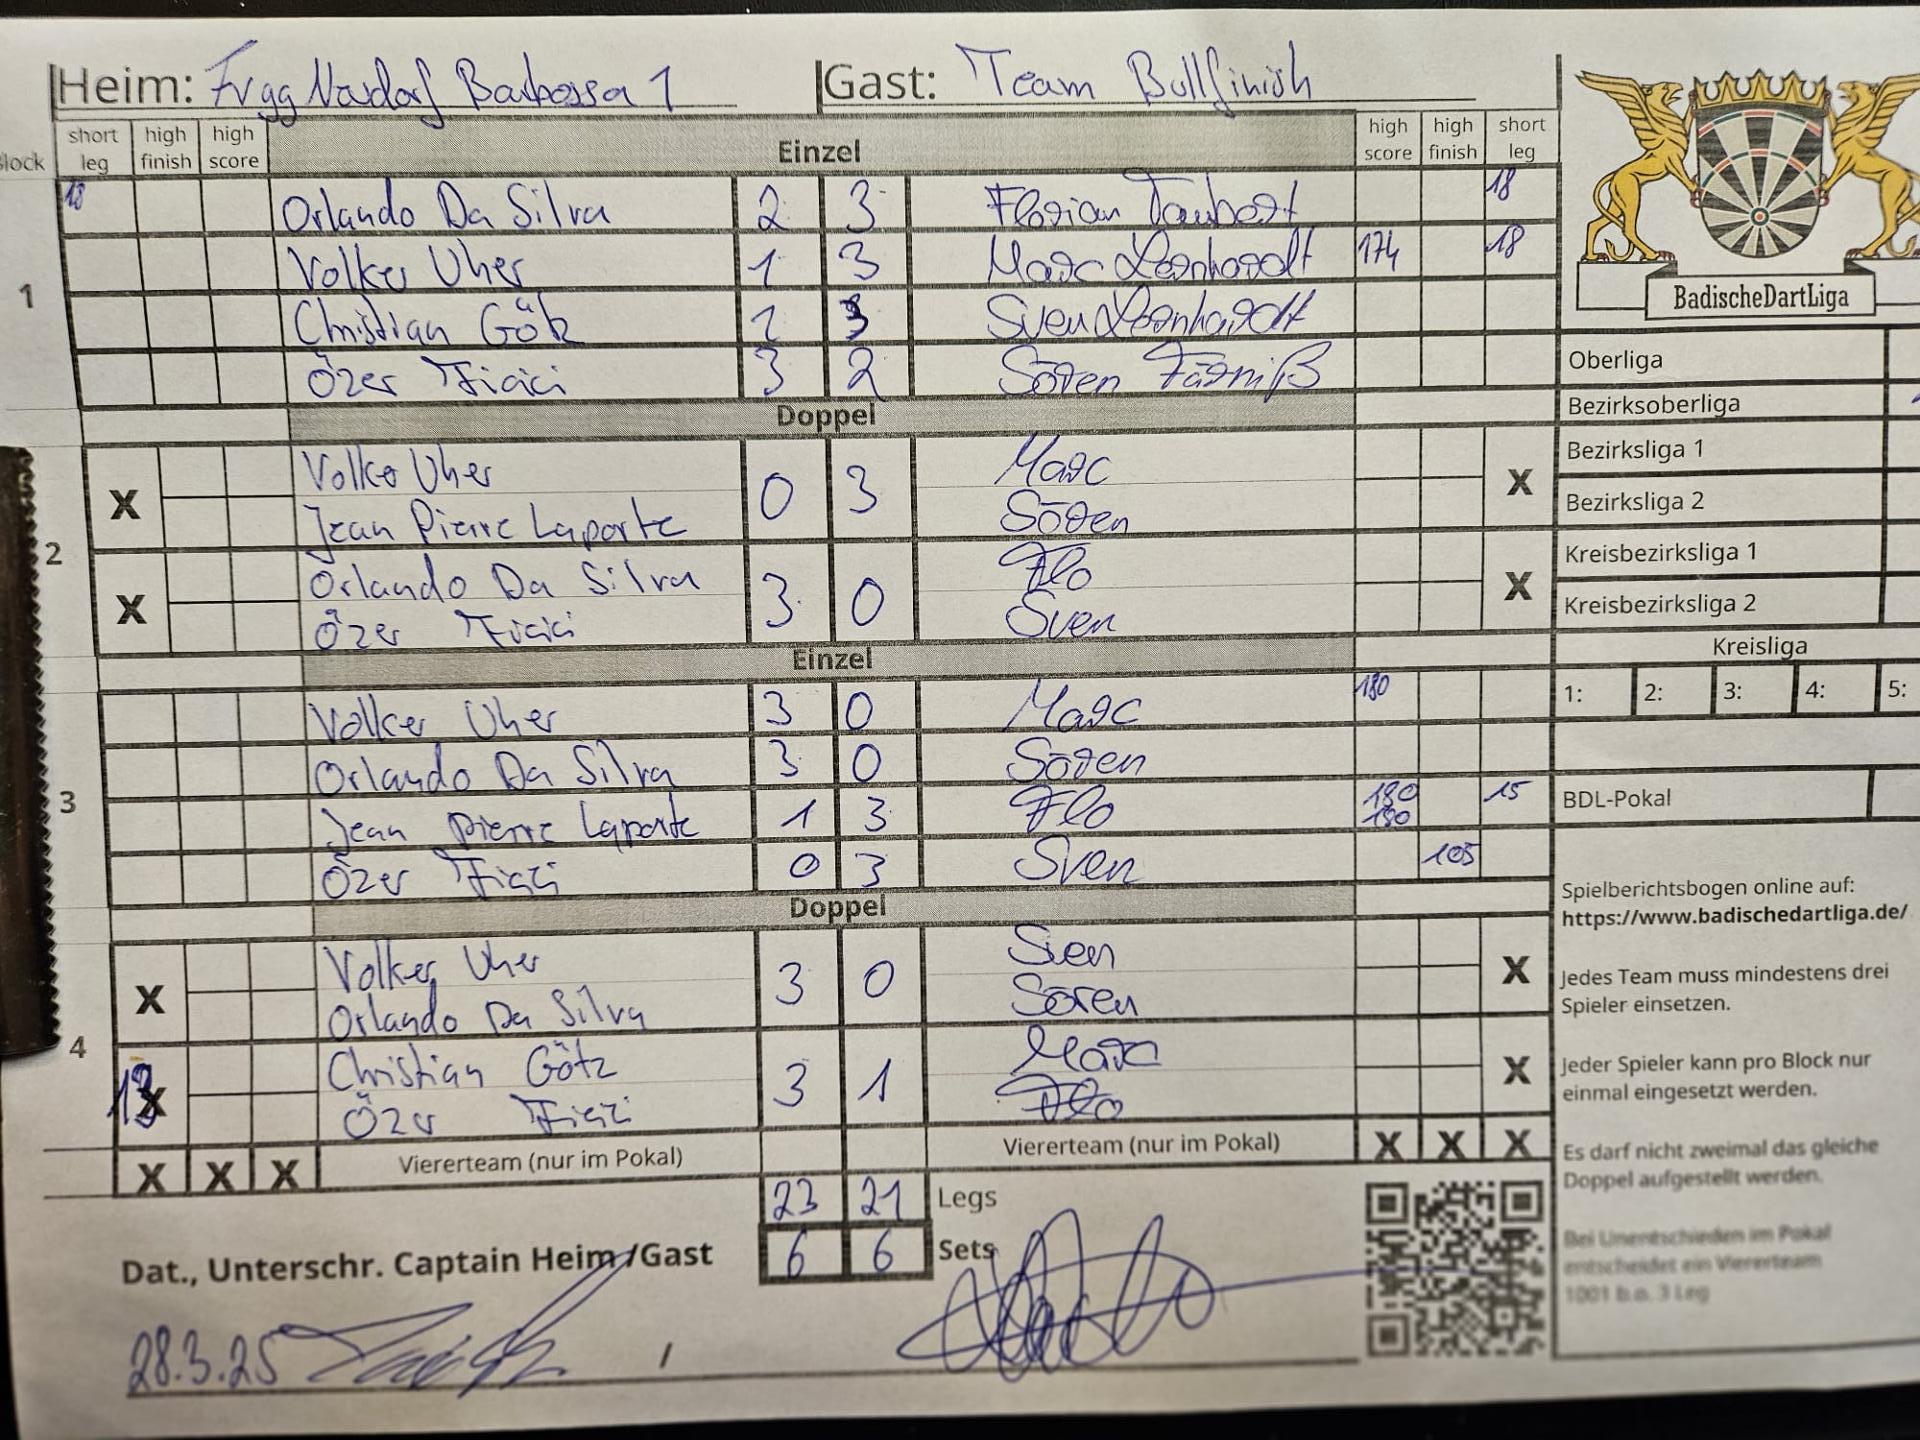 Heim: Frgg Nordorf Barbossa 1 Gast: Team Bullfinish
Block short leg high finish high score Einzel high score high finish short leg
1
18 Orlando Da Silva 2 3 Florian Taubert 18
Volker Uher 1 3 Marc Leonhardt 174 18
Christian Götz 1 3 Sven Leonhardt
Özer Ficici 3 2 Sören Färniß
Doppel
2
X Volker Uher 0 3 Marc X
Jean Pierre Laporte Sören
X Orlando Da Silva 3 0 Flo X
Özer Ficici Sven
Einzel
3
Volker Uher 3 0 Marc 180
Orlando Da Silva 3 0 Sören
Jean Pierre Laporte 1 3 Flo 180 180 15
Özer Ficici 0 3 Sven 105
Doppel
4
X Volker Uher 3 0 Sven X
Orlando Da Silva Sören
X Christian Götz 3 1 Marc X
Özer Ficici Flo
X X X Viererteam (nur im Pokal) Viererteam (nur im Pokal) X X X
23 21 Legs
6 6 Sets
Dat., Unterschr. Captain Heim /Gast
28.3.25 /
BadischeDartLiga
Oberliga
Bezirksoberliga
Bezirksliga 1
Bezirksliga 2
Kreisbezirksliga 1
Kreisbezirksliga 2
Kreisliga
1: 2: 3: 4: 5:
BDL-Pokal
Spielberichtsbogen online auf:
https://www.badischedartliga.de/
Jedes Team muss mindestens drei
Spieler einsetzen.
Jeder Spieler kann pro Block nur
einmal eingesetzt werden.
Es darf nicht zweimal das gleiche
Doppel aufgestellt werden.
Bei Unentschieden im Pokal
entscheidet ein Viererteam
1001 b.o. 3 Leg